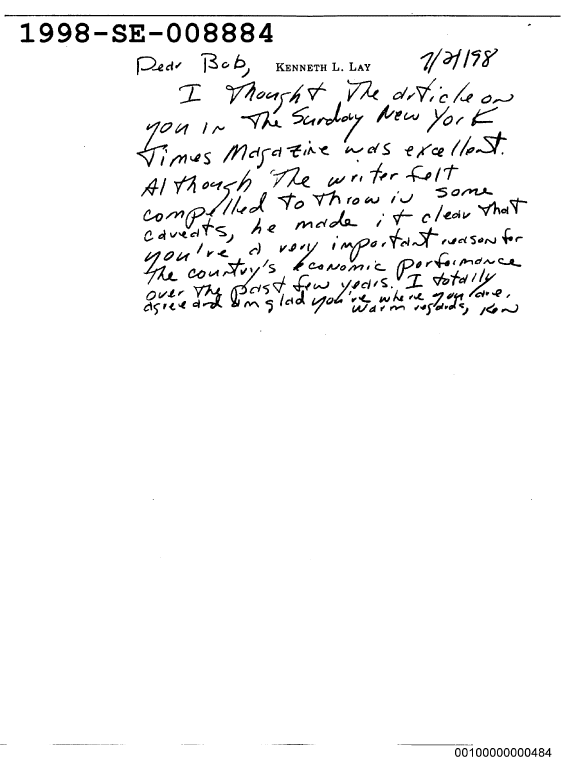 1998-SE-008884
Dear Bob,
KENNETH L. LAY
7/21/98
I Thought The article on
you in The Sunday New York
Times Magazine was excellent.
Although The writer felt
compelled to throw in some
caveats, he made it clear that
you're a very important reason for
the country's economic performance
over the past few years. I totally
agree and am glad you're where you are.
Warm regards, Ken
00100000000484